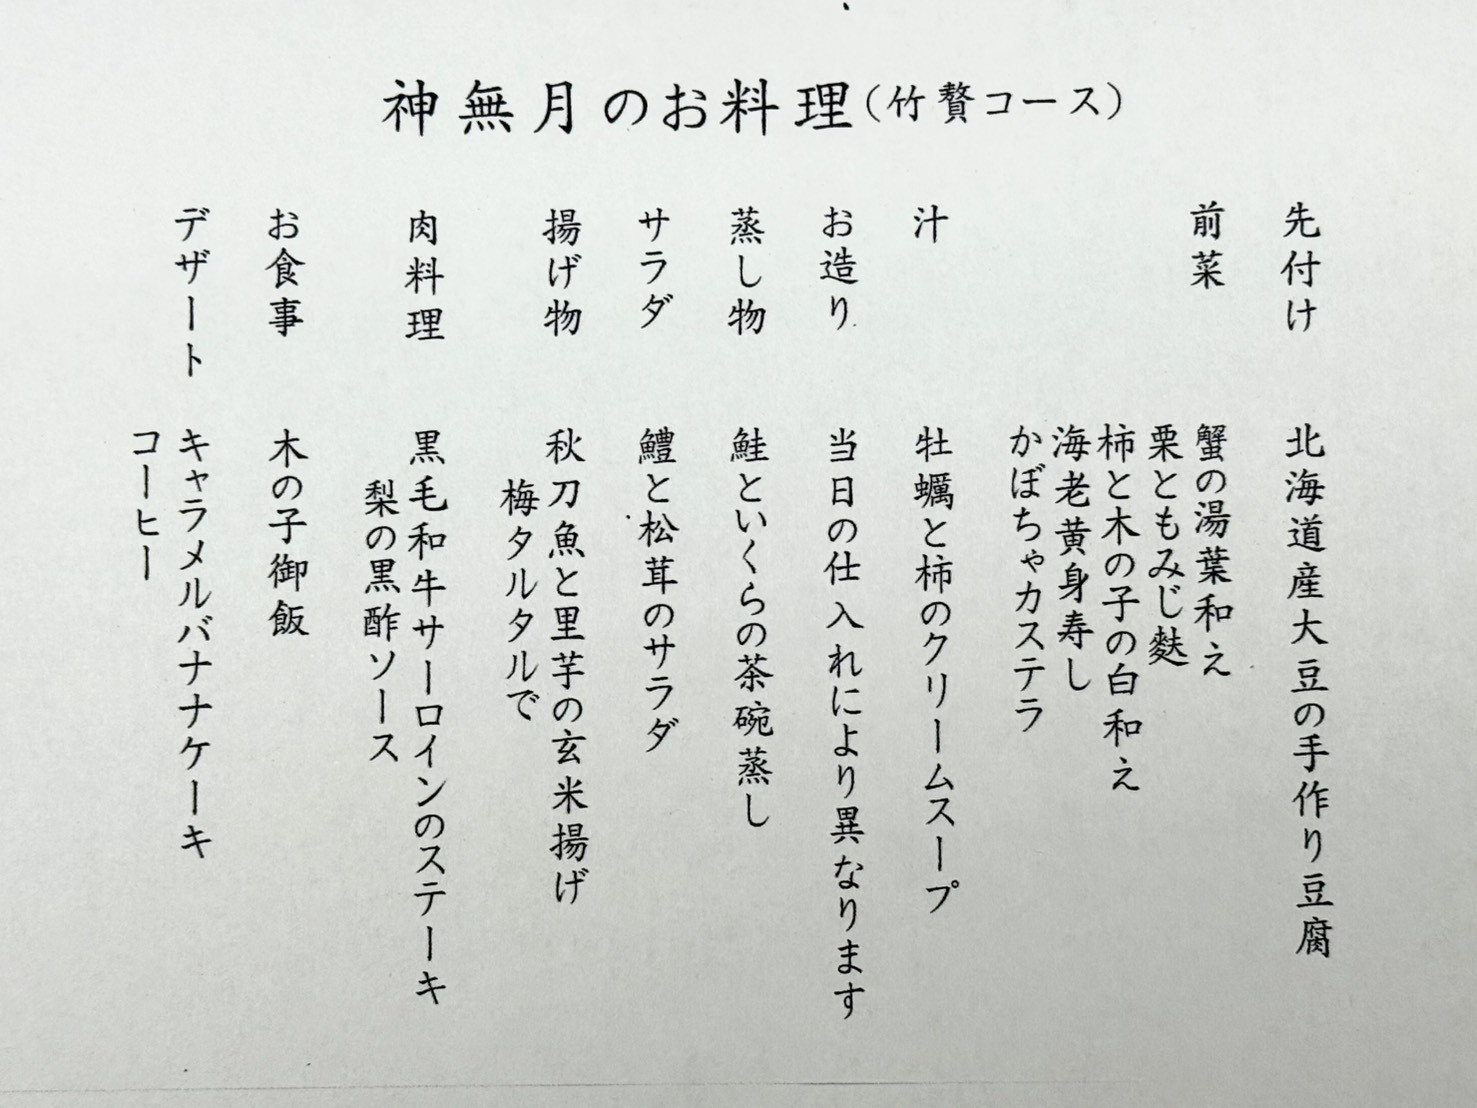 神無月のお料理（竹贅コース）
先付け　北海道産大豆の手作り豆腐
前菜　蟹の湯葉和え
栗ともみじ麩
柿と木の子の白和え
海老黄身寿し
かぼちゃカステラ
汁　牡蠣と柿のクリームスープ
お造り　当日の仕入れにより異なります
蒸し物　鮭といくらの茶碗蒸し
サラダ　鱧と松茸のサラダ
揚げ物　秋刀魚と里芋の玄米揚げ
梅タルタルで
肉料理　黒毛和牛サーロインのステーキ
梨の黒酢ソース
お食事　木の子御飯
デザート　キャラメルバナナケーキ
コーヒー